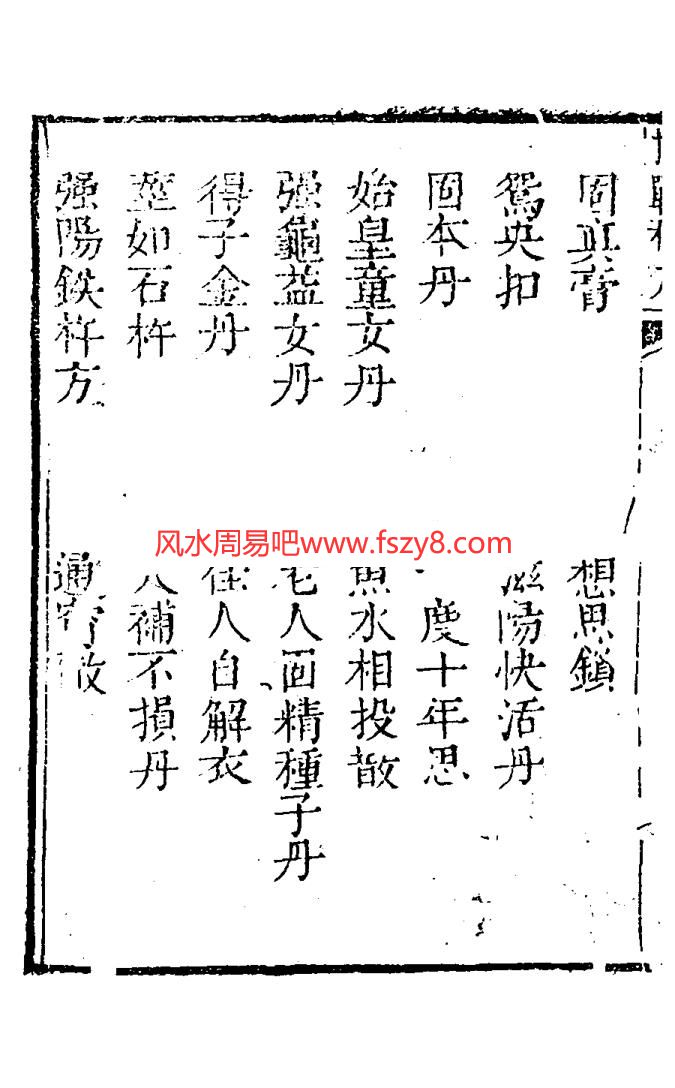 固真膏
想思鎖
鴛央扣
滋陽快活丹
固本丹
度十年思
始皇童女丹
魚水相投散
强龜益女丹
老人固精種子丹
得子金丹
佳人自解衣
莖如石杵
補不損丹
强陽鉄杵方
通
散
风水周易吧www.fszy8.com